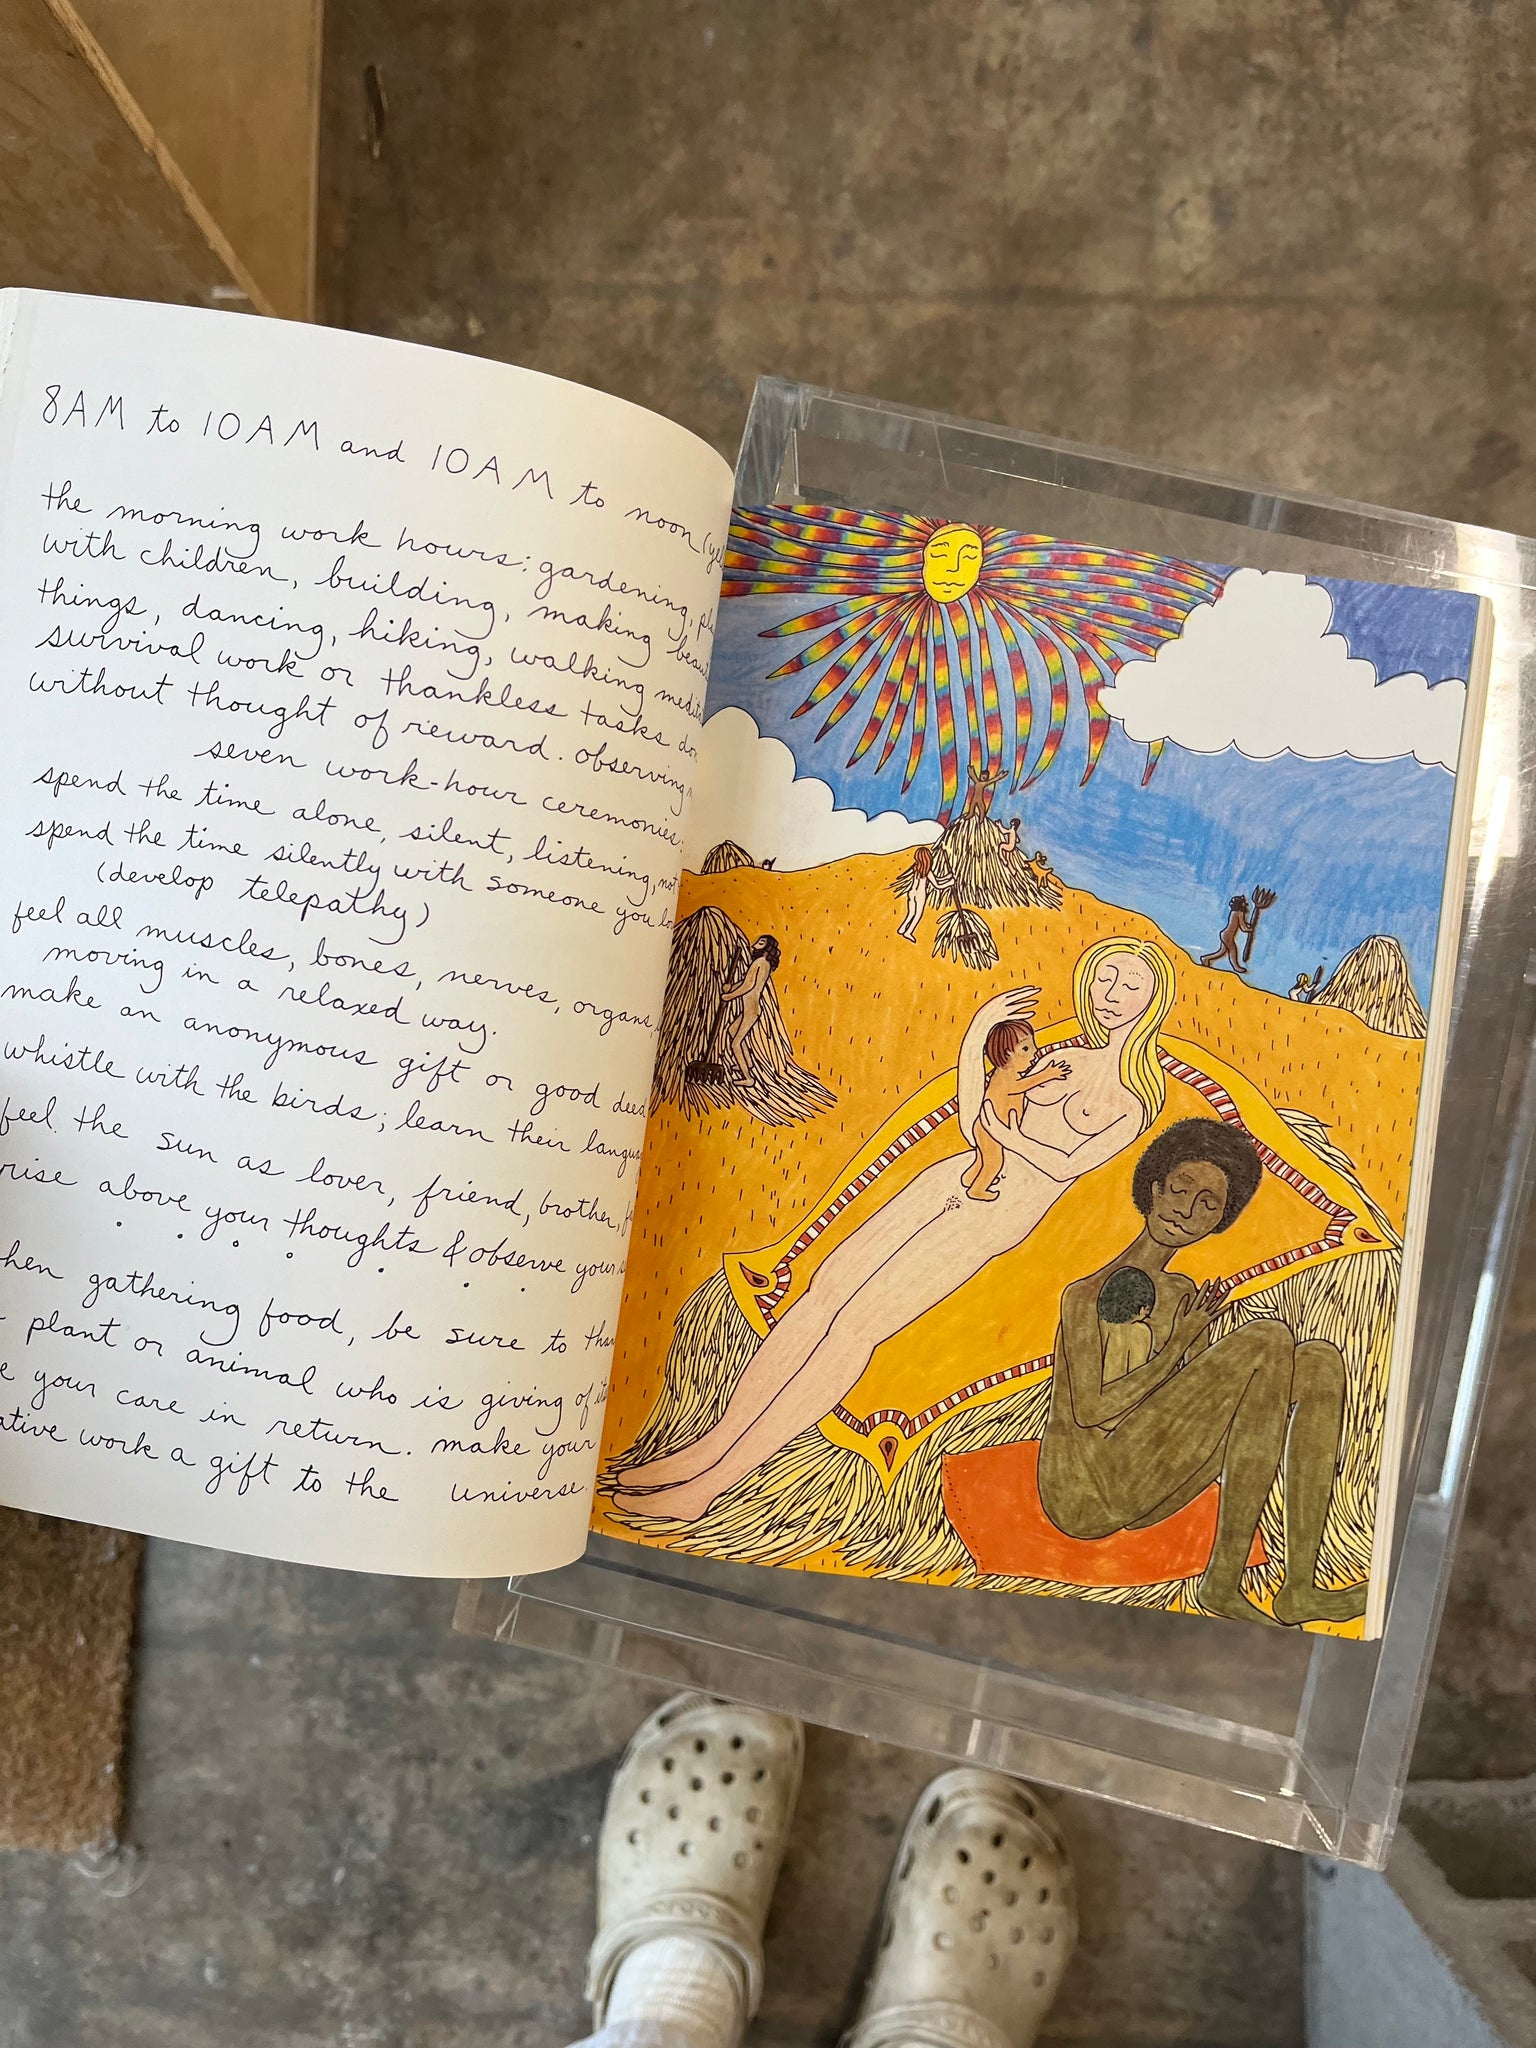 8AM to 10AM and 10AM to noon
the morning work hours: gardening,
with children, building, making
things, dancing, hiking, walking
survival work or thankless tasks
without thought of reward. observing
seven work-hour ceremonies:
spend the time alone, silent, listening,
spend the time silently with someone you
(develop telepathy)
feel all muscles, bones, nerves, organs,
moving in a relaxed way.
make an anonymous gift or good deed
whistle with the birds; learn their
feel the sun as lover, friend, brother,
rise above your thoughts & observe
gathering food, be sure to
plant or animal who is giving of
your care in return. make your
work a gift to the universe.